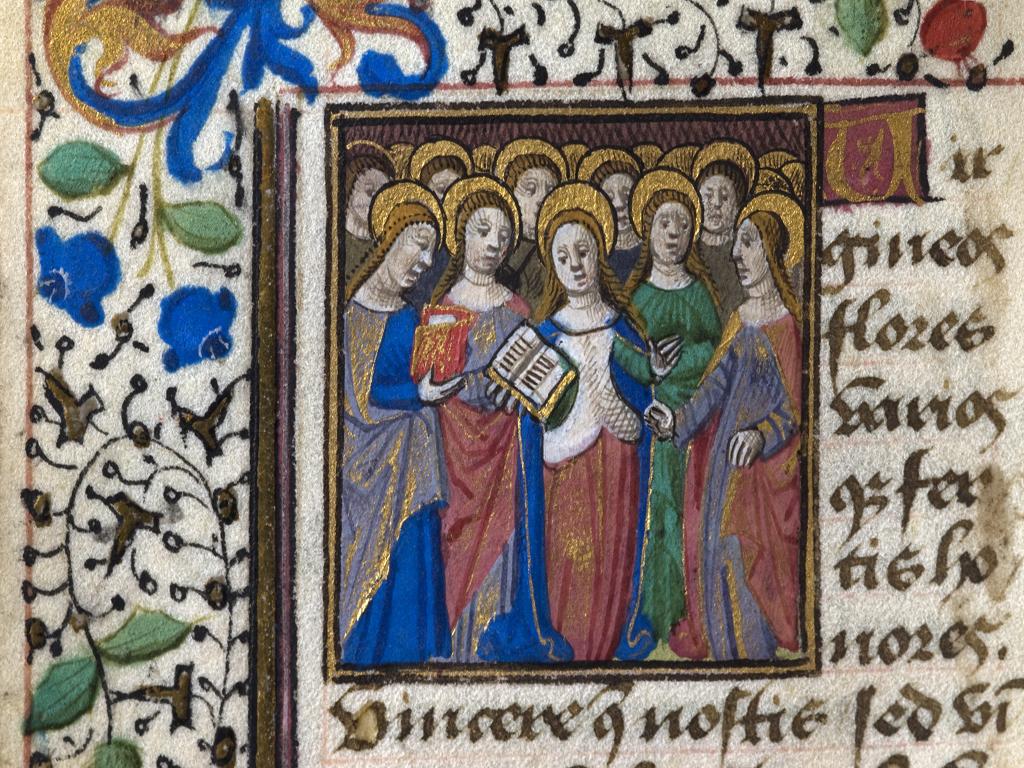 Uir
gineos
flores
varios
qꝫ fer
tis ho
nores.
Vincere q̄ nostis sed vi